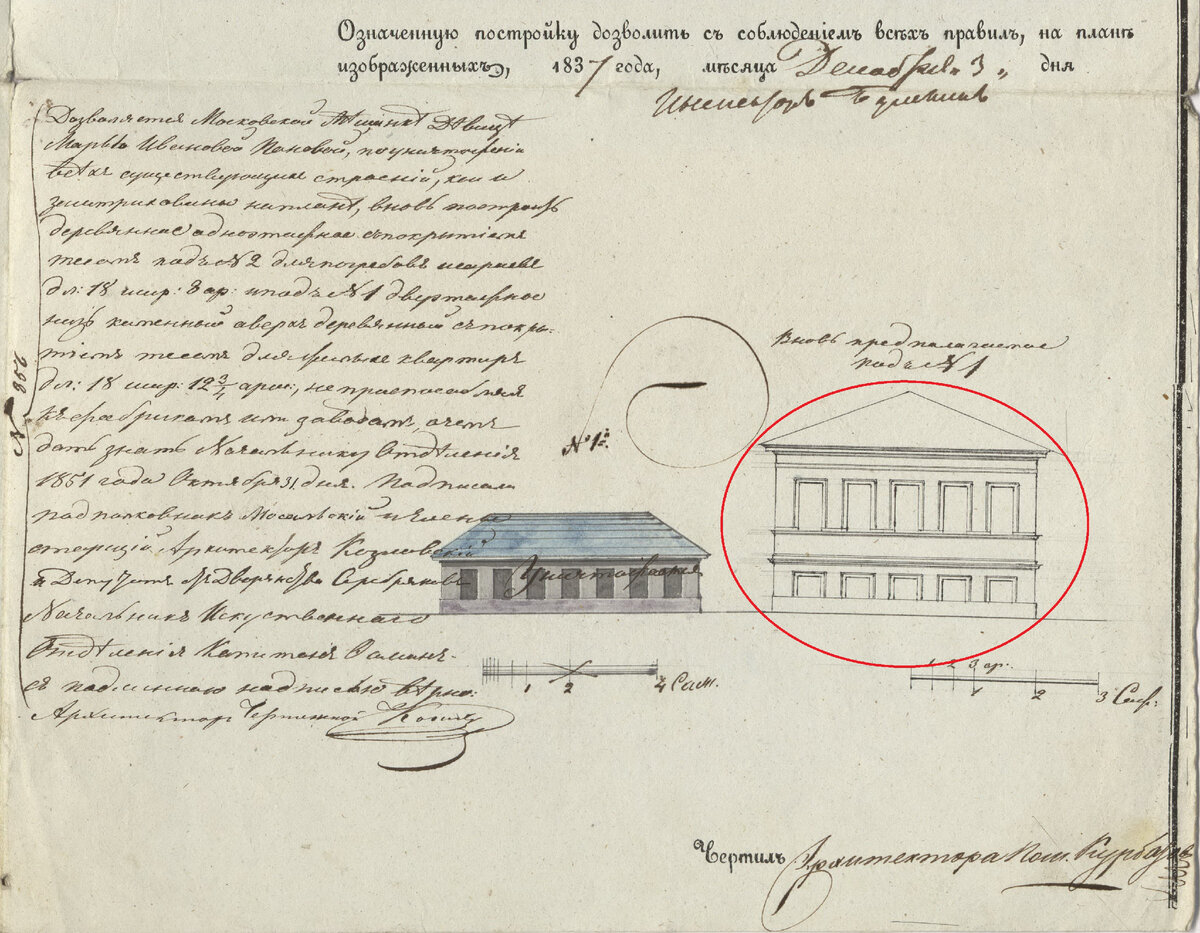 Означенную постройку дозволить съ соблюденіемъ всѣхъ правилъ, на планѣ
изображенныхъ, 1837 года, мѣсяца Декабря „3„ дня
Дозволяется Московской Мѣщанкѣ Дѣвицѣ
Марьѣ Ивановой Пановой, по уничтоженіи
всѣхъ существующихъ строеній, кои и
заштрихованы на планѣ, вновь построить
деревянное одноэтажное съ покрытіемъ
тесомъ подъ № 2 для погребовъ и сараевъ
дл: 18 шир: 8 ар: и подъ № 1 двухэтажное
низъ каменный а верхъ деревянный съ покры-
тіемъ тесомъ для жилыхъ квартиръ
дл: 18 шир: 12 3/4 арш:, не приспособляя
къ фабрикамъ или заводамъ, о чемъ
дать знать Начальнику Отдѣленія
1851 года Октября 31 дня. Подписали
подполковникъ Мосальскій и Члены
Архитекторъ Козловскій
и Депутатъ Дворянства Серебряковъ
Начальникъ Искуственнаго
Отдѣленія Капитанъ
Съ подлинною надписью вѣрно:
Архитекторъ Чертежной
№
№ 1й
Вновь предполагаемое
подъ № 1
Уничтожается
1 2 4 Саж.
1 2 3 ар.
1 2 3 Саж.
Чертилъ Архитектора Пом. Курбатовъ